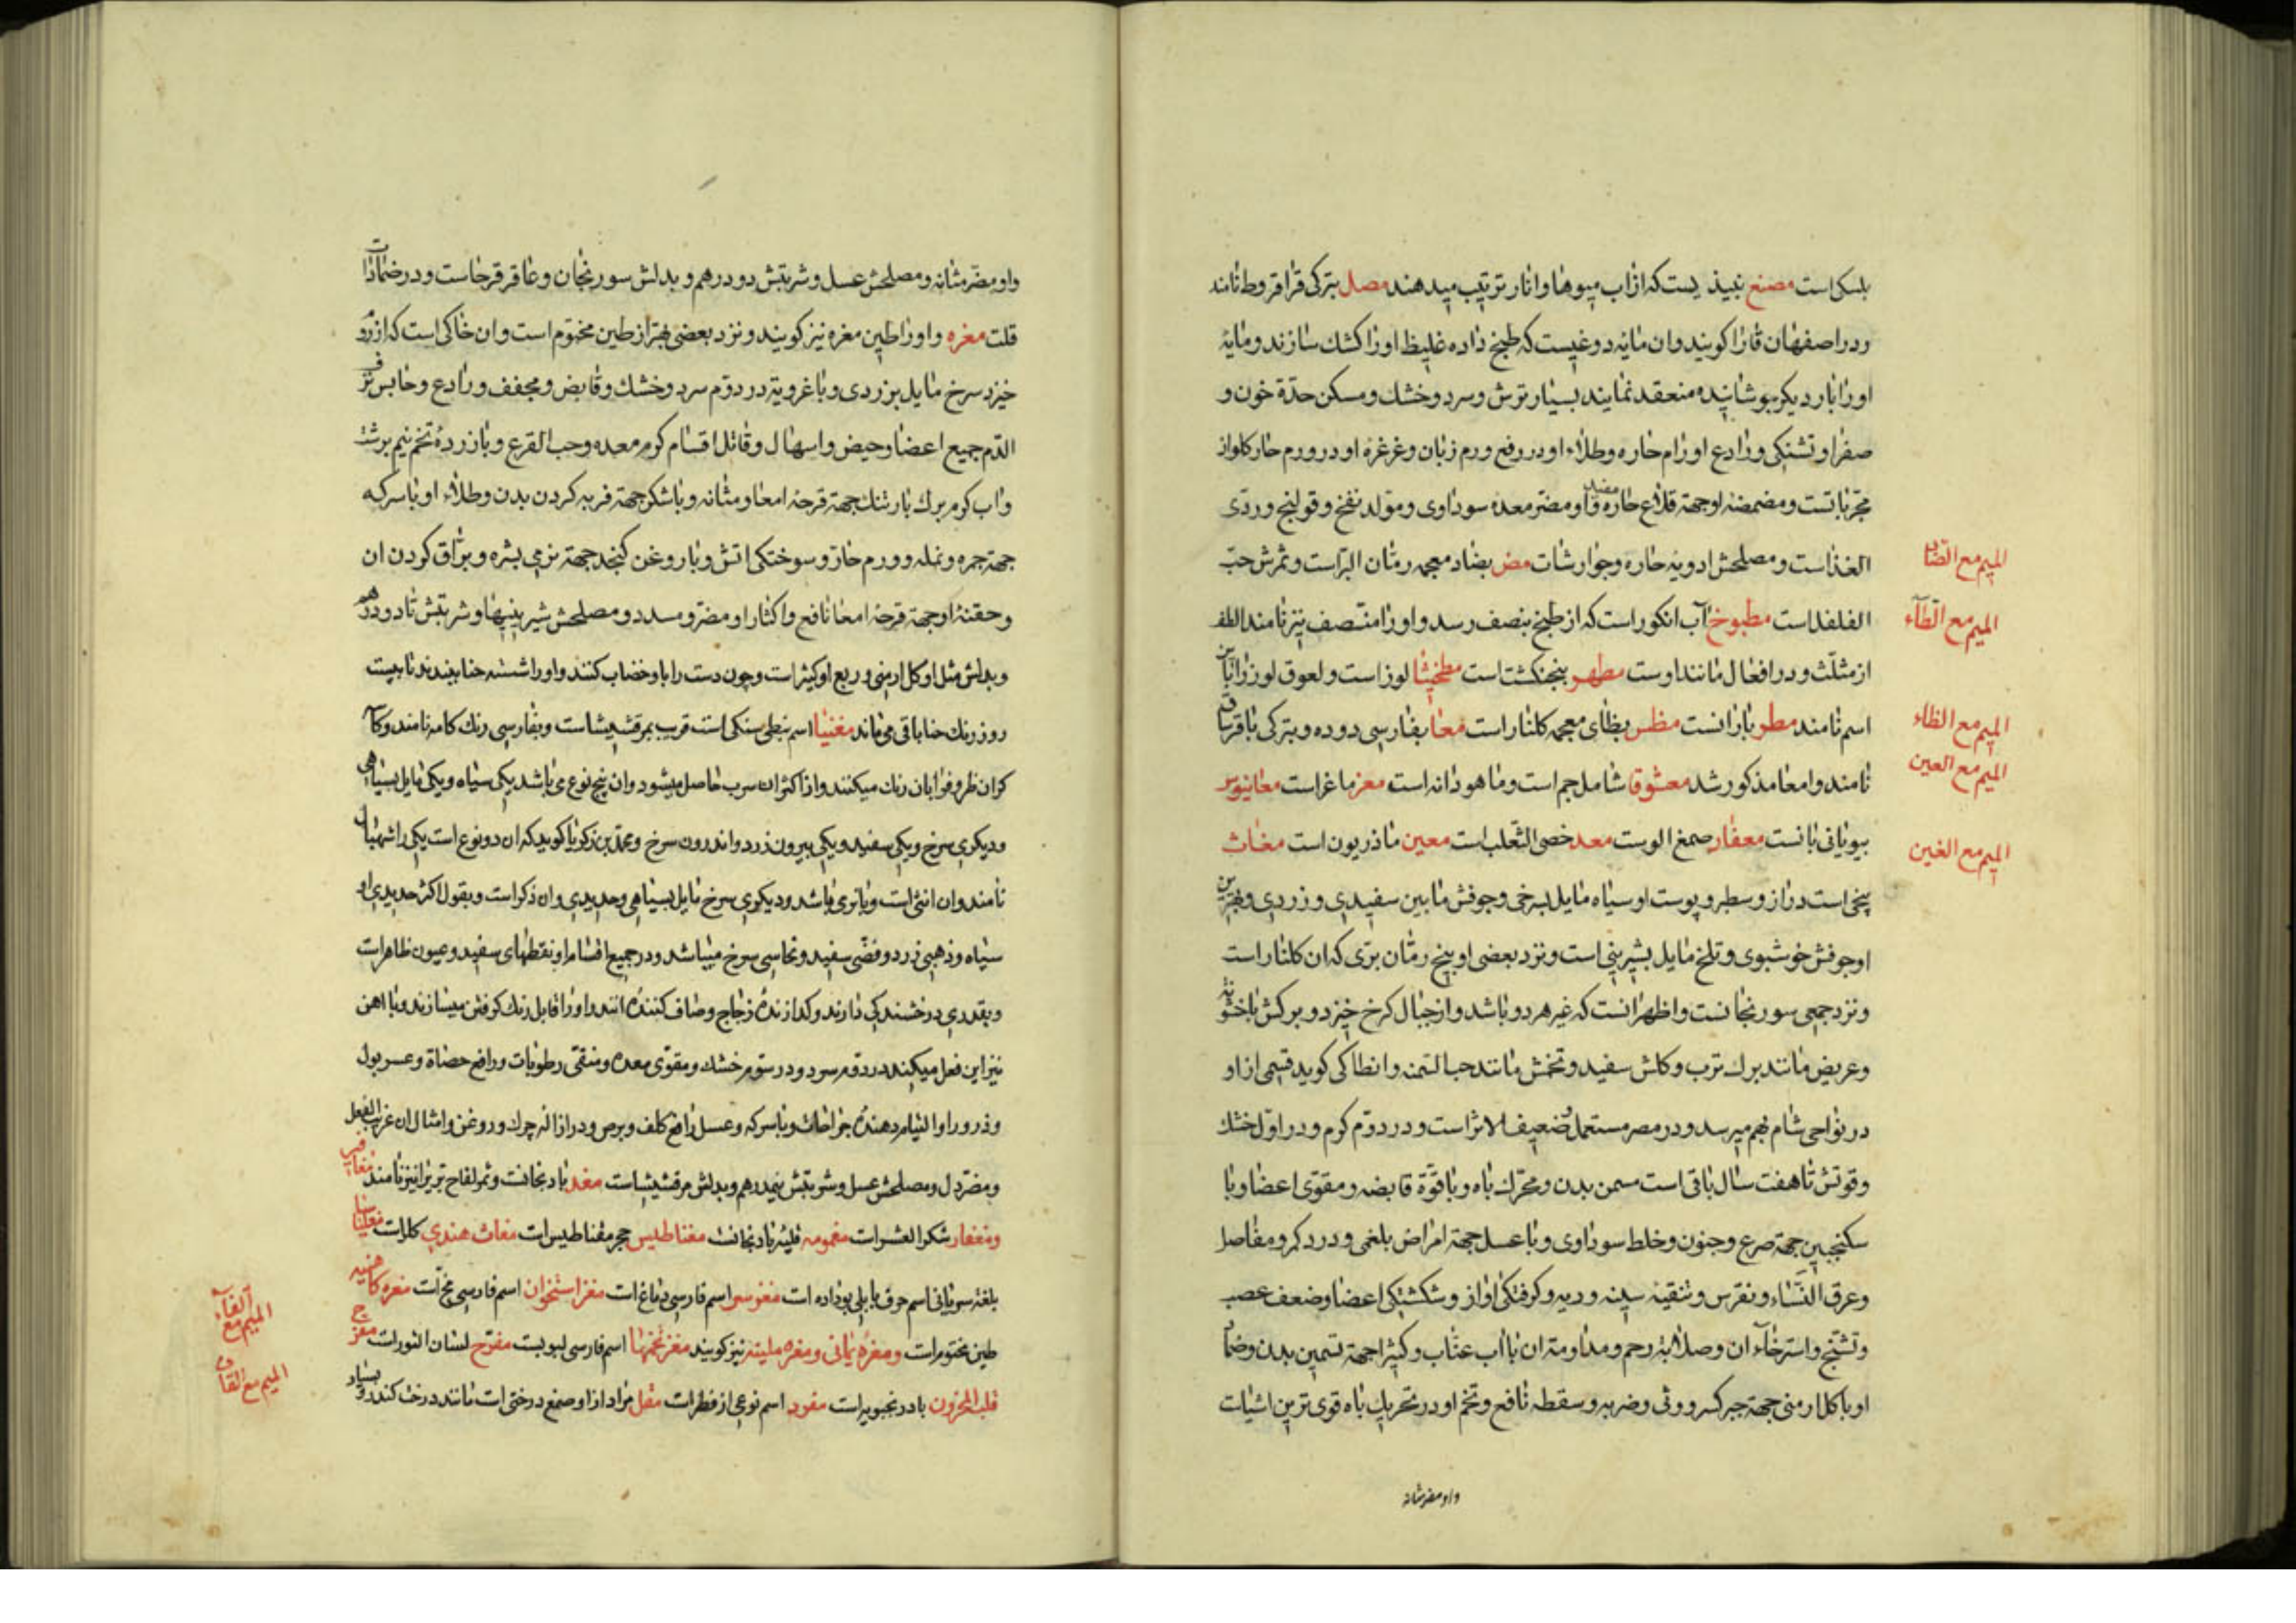 بلسکر است مصنع نبیذیست که از اب میوها و انار ترتیب میدهند مصل بترکی قراقروط نامند
و در اصفهان قارا کویند و ان مانیه دوغیست که طبخ داده غلیظ اورا کشك سازند و مایۀ
اورا بار دیکر جوشانیده منعقد نمایند بسیار ترش و سرد و خشك و مسکن حدّة خون و
صفرا و تشنکی و رادع اورام حاره و طلاء او در رفع ورم زبان و غرغرۀ او در ورم حار کلو از
مجرّباتست و مضمضۀ او جهة قلاع حاره مفید و او مضرّ معده سوداوی و مولد نفخ و قولنج و ردّی
الغذاست و مصلحش ادویۀ حاره و جوارشات مض بضاد معجمه رمّان البرّاست و ثمرش حبّ
المیم مع الضاد
الفلفلست مطبوخ آب انکور است که از طبخ بنصف رسد و اورا منتصف نیز نامند الطف
المیم مع الطآء
از مثلّث و در افعال مانند اوست مطهر پنجنکشت است مطخیثا لوز است و لعوق لوز را باین
اسم نامند مطر بارانست مظس بظای معجمه کلنار است معا بفارسی روده و بترکی باقرساق
المیم مع الظاء
نامند و امعا مذکور شد معشوقا شاملجم است و ماهودانه است معز ماغر است معانیوس
المیم مع العین
بیونانی بانست معفار صمغ الوست معد خصی الثّعلب است معین ماذریون است مغاث
المیم مع الغین
بیخی است دراز و سطبر و پوست او سیاه مایل بسرخی و جوفش مابین سفیدی و زردی و بهترین
او جوفش خوشبوی و تلخ مایل بشیرینی است و نزد بعضی او بیخ رمّان برّی که ان کلنار است
و نزد جمعی سورنجانست و اظهر انست که غیر هر دو باشد و از جبال کرخ خیزد و برکش با خشونة
و عریض مانند برك ترب و کلش سفید و تخمش مانند حب السّمنه و انطاکی کوید قسمی از او
در نواحی شام بهم میرسد و در مصر مستعمل و ضعیف الاثر است و در دوّم کرم و در اوّل خشك
و قوتش تا هفت سال باقی است مسمن بدن و محرّك باه و با قوّة قابضه و مقوّی اعضا و با
سکنجبین جهة صرع و جنون و خلط سوداوی و با عسل جهة امراض بلغمی و درد کمر و مفاصل
و عرق النّساء و نقرس و تنقیۀ سینه و ریه و کرفتکی اواز و شکستکی اعضا و ضعف عصب
و تشنّج و استرخآء ان و صلابة رحم و مداومة ان با اب عنّاب و کثیرا جهة تسمین بدن و ضماد
او با کل ارمنی جهة جبر کسر و وثی و ضربه و سقطه نافع و تخم او در تحریك باه قوی ترین اشیاست
و او مضر مثانه
و او مضرّ مثانه و مصلحش عسل و شربتش دو درهم و بدلش سورنجان و عاقر قرحاست و در ضمادات
قلت مغره و اورا طین مغره نیز کویند و نزد بعضی بهتر از طین مختوم است و ان خاکی است که از روم
خیزد سرخ مایل بزردی و با غرویة در دوّم سرد و خشك و قابض و مجفف و رادع و حابس نزف
الدّم جمیع اعضا و حیض و اسهال و قاتل اقسام کرم معده و حب القرع و با زردۀ تخم نیم برشت
و اب کرم برك بارتنك جهة قرحۀ امعا و مثانه و با شکر جهة فربه کردن بدن و طلاء او با سرکه
جهة جمره و نمله و ورم حار و سوختکی اتش و با روغن کنجد جهة نرمی بشره و برّاق کردن ان
و حقنۀ او جهة قرحۀ امعا نافع و اکثار او مضر و مسدد و مصلحش شیرینیها و شربتش تا دو درهم
و بدلش مثل او کل ارمنی و ربع او کثیرا است و چون دست را باو خضاب کنند و اورا شسته حنا ببندند تا بیست
روز رنك حنا باقی می ماند مغنیثا اسم نبطی سنکی است قریب بمرقشیشاست و بفارسی رنك کاسه نامند و کاسه
کران ظروف را بان رنك میکنند و از اکثر ان سرب حاصل میشود و ان پنج نوع می باشد یکی سیاه و یکی مایل بسیاهی
و دیکری سرخ و یکی سفید و یکی بیرون زرد و اندرون سرخ و محمّد بن زکریا کوید که ان دو نوع است یکی را شهبا
نامند و ان انثی است و یا بری باشد و دیکری سرخ مایل بسیاهی و حدیدی و ان ذکر است و بقول اکثر حدیدی او
سیاه و ذهبی زرد و فضّی سفید و نحاسی سرخ میباشد و در جمیع اقسام او نقطهای سفید و عیون ظاهر است
و بقدری درخشندکی دارند و کدازندۀ زجاج و صاف کنندۀ انند و اورا قابل رنك کرفتن میسازند و با اهن
نیز این فعل میکنند در دوّم سرد و در سوّم خشك و مقوّی معده و منقّی رطوبات و رافع حصاة و عسر بول
و ذرور او التیام دهندۀ جراحات و با سرکه و عسل رافع کلف و برص و در ازالۀ چرك و روغن و امثال ان غریب الفعل
و مضرّ دل و مصلحش عسل و شربتش نیمدرهم و بدلش مرقشیشاست مغد بادنجانست و ثمر لفاح برّی را نیز نامند مغافیر
و مغفار شکر العشر است مغمومه قلیۀ بادنجانست مغناطیس حجر مغناطیس است مغاث هندی کلز است
بلغة سریانی اسم حرف بابلی بوداده است مغوس اسم فارسی دماغ است مغز استخوان اسم فارسی مخّ است مغره کاهنیه
طین مختوم است و مغرۀ یمانی و مغره ملینه نیز کویند مغز تخمها اسم فارسی لبوبست مفرّح لسان الثور است مفرّح
المیم مع الفآء
قلب المحزون بادرنجبویه است مقود اسم نوعی از فطر است مقل مراد از او صمغ درختی است مانند درخت کندر و بسیار
المیم مع القاف